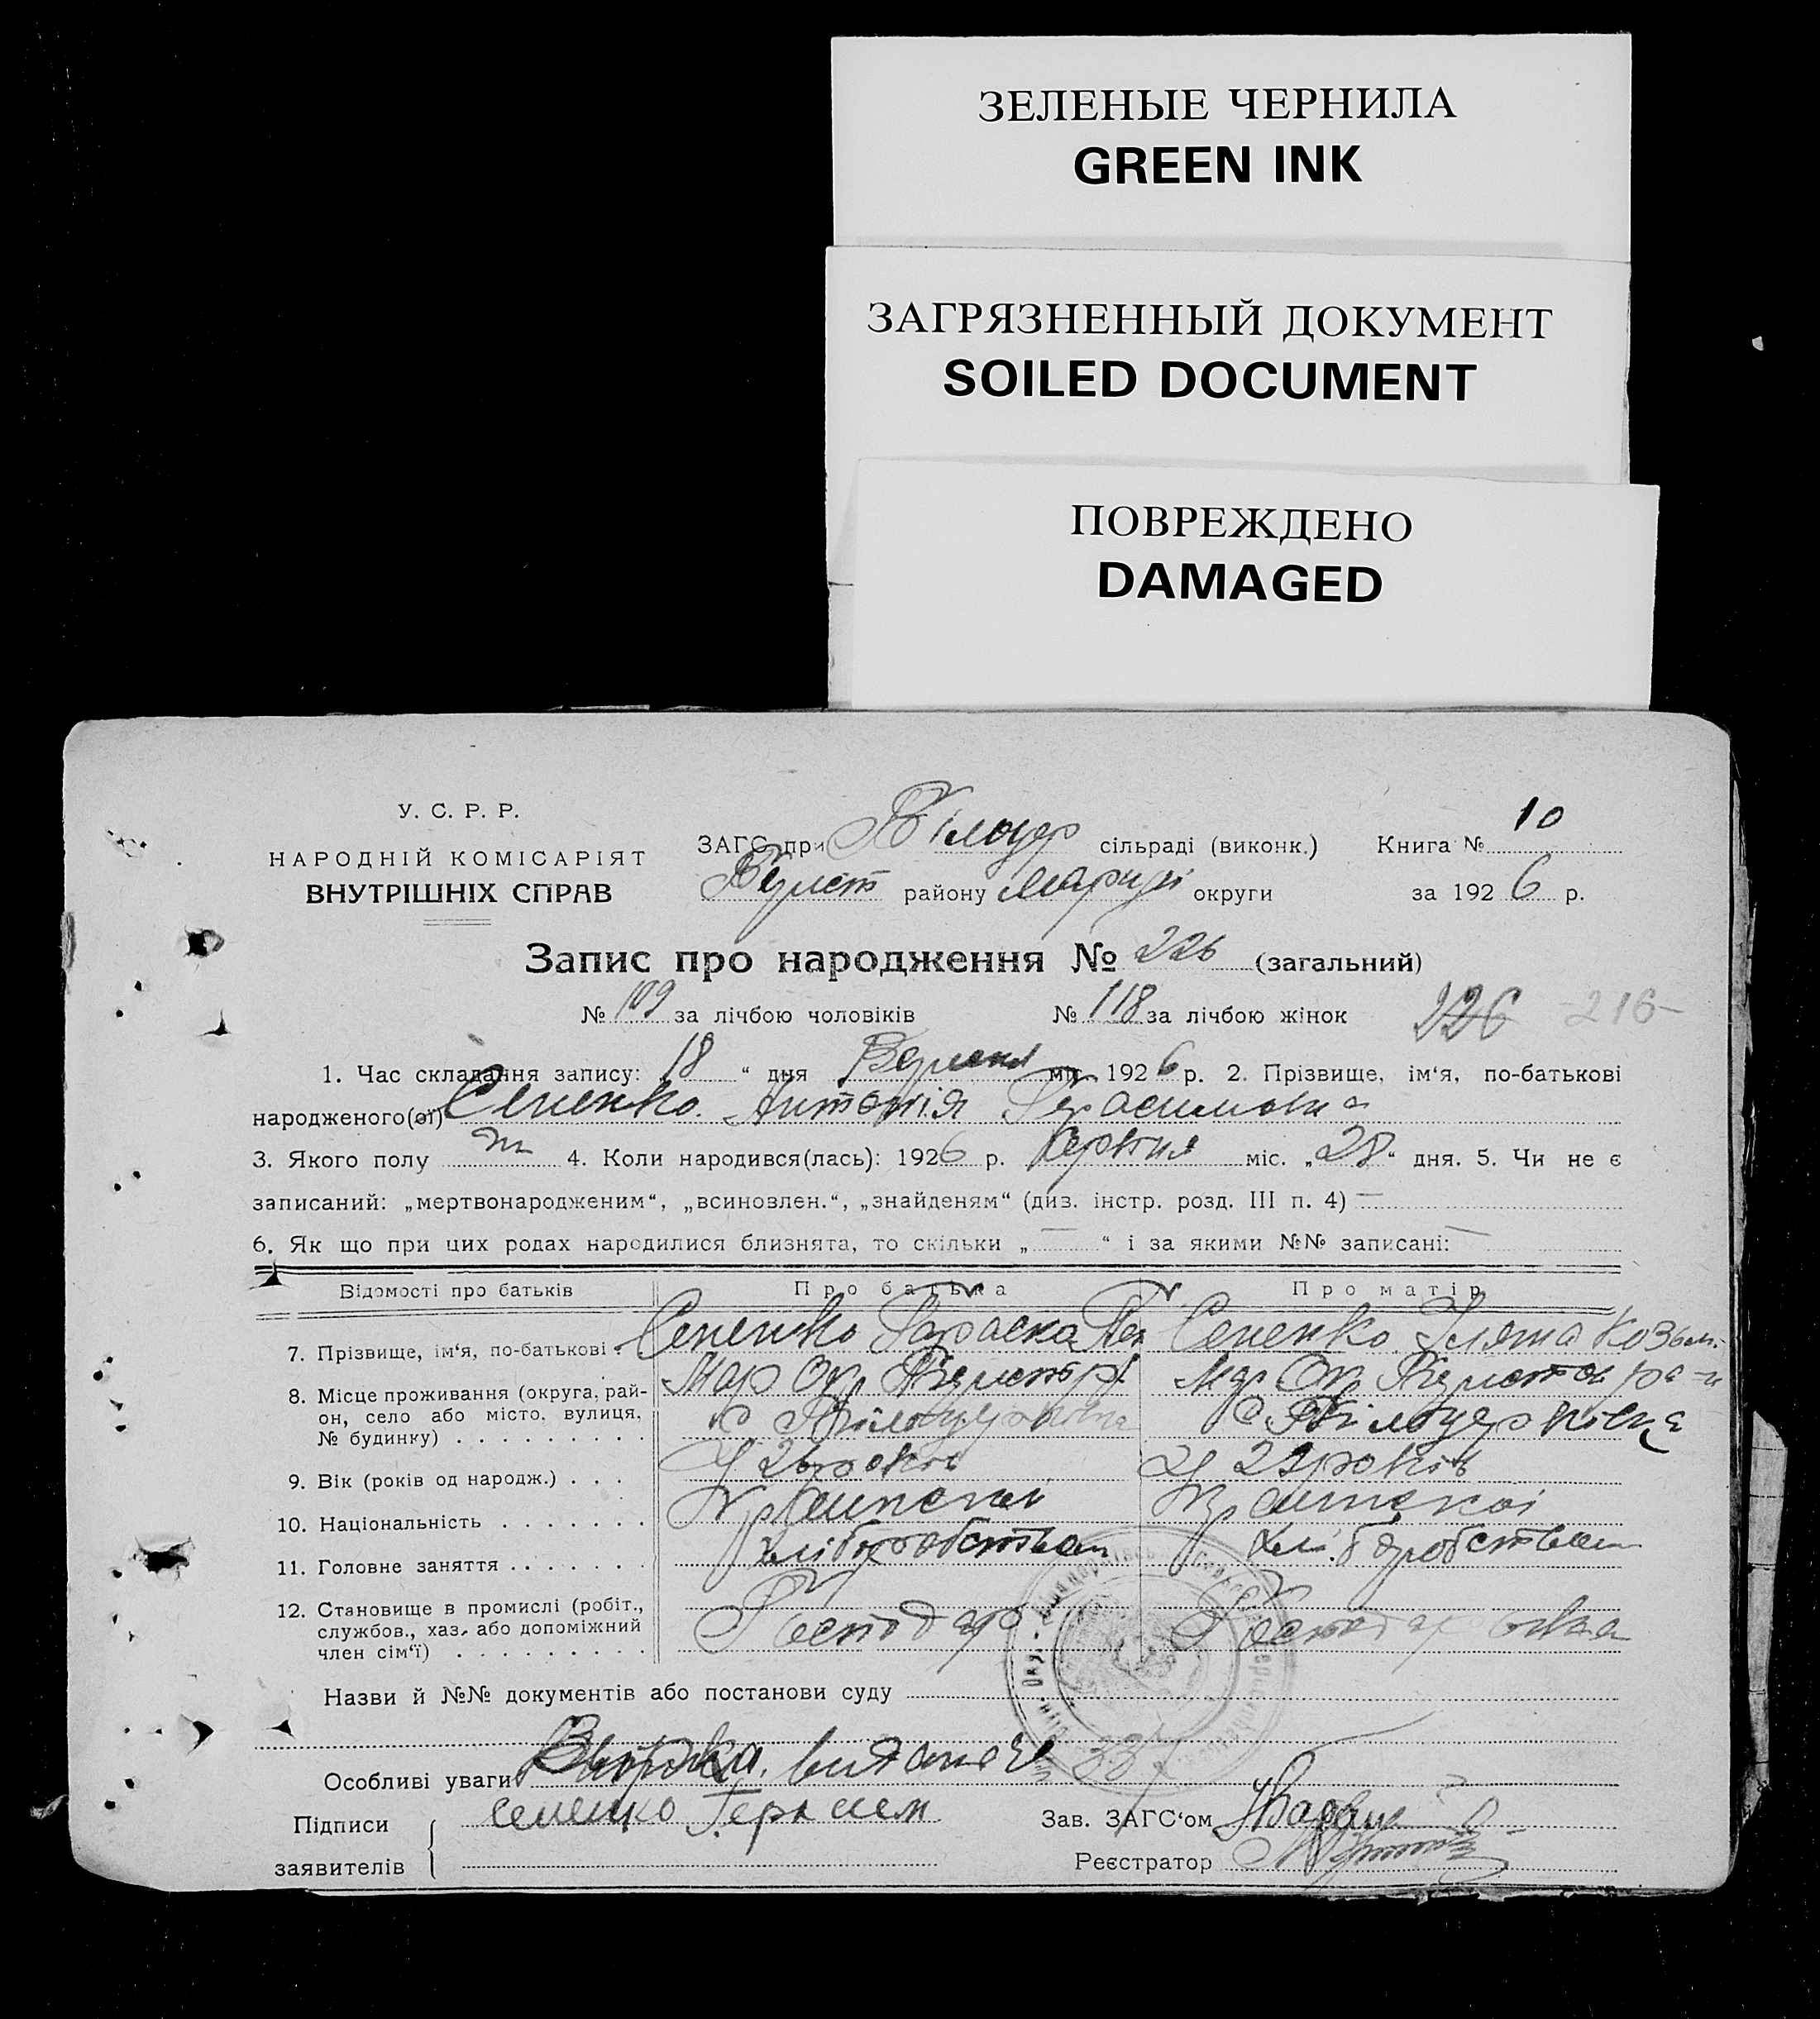 ЗЕЛЕНЫЕ ЧЕРНИЛА
GREEN INK
ЗАГРЯЗНЕННЫЙ ДОКУМЕНТ
SOILED DOCUMENT
ПОВРЕЖДЕНО
DAMAGED
У. С. Р. Р.
НАРОДНІЙ КОМІСАРІЯТ
ВНУТРІШНІХ СПРАВ
ЗАГС при Білоцер сільраді (виконк.) Книга № 10
району округи за 1926 р.
Запис про народження № 226 (загальний)
№ 109 за лічбою чоловіків № 118 за лічбою жінок 226 -216-
1. Час складання запису: 18 " дня Вересня міс. 1926 р. 2. Прізвище, ім'я, по-батькові
народженого(ої) Сененко Антонія Герасимовна
3. Якого полу 4. Коли народився(лась): 1926 р. Червня міс. „28" дня. 5. Чи не є
записаний: „мертвонародженим", „всиновлен.", „знайденям" (див. інстр. розд. III п. 4) —
6. Як що при цих родах народилися близнята, то скільки „—" і за якими №№ записані: —
Відомості про батьків Про батька Про матір
7. Прізвище, ім'я, по-батькові Сененко Сененко Козьм.
8. Місце проживання (округа, рай- Мар Ок Мар Ок
он, село або місто, вулиця, с Білоцерковка с Білоцерковка
№ будинку)
9. Вік (років од народж.) 26 років 22 років
10. Національність Украинскоі Украинскоі
11. Головне заняття хліборобством хліборобством
12. Становище в промислі (робіт., Господар Господарювка
службов., хаз. або допоміжний
член сім'ї)
Назви й №№ документів або постанови суду
Особливі уваги 337
Підписи Сененко Герасем Зав. ЗАГС'ом
заявителів Реєстратор